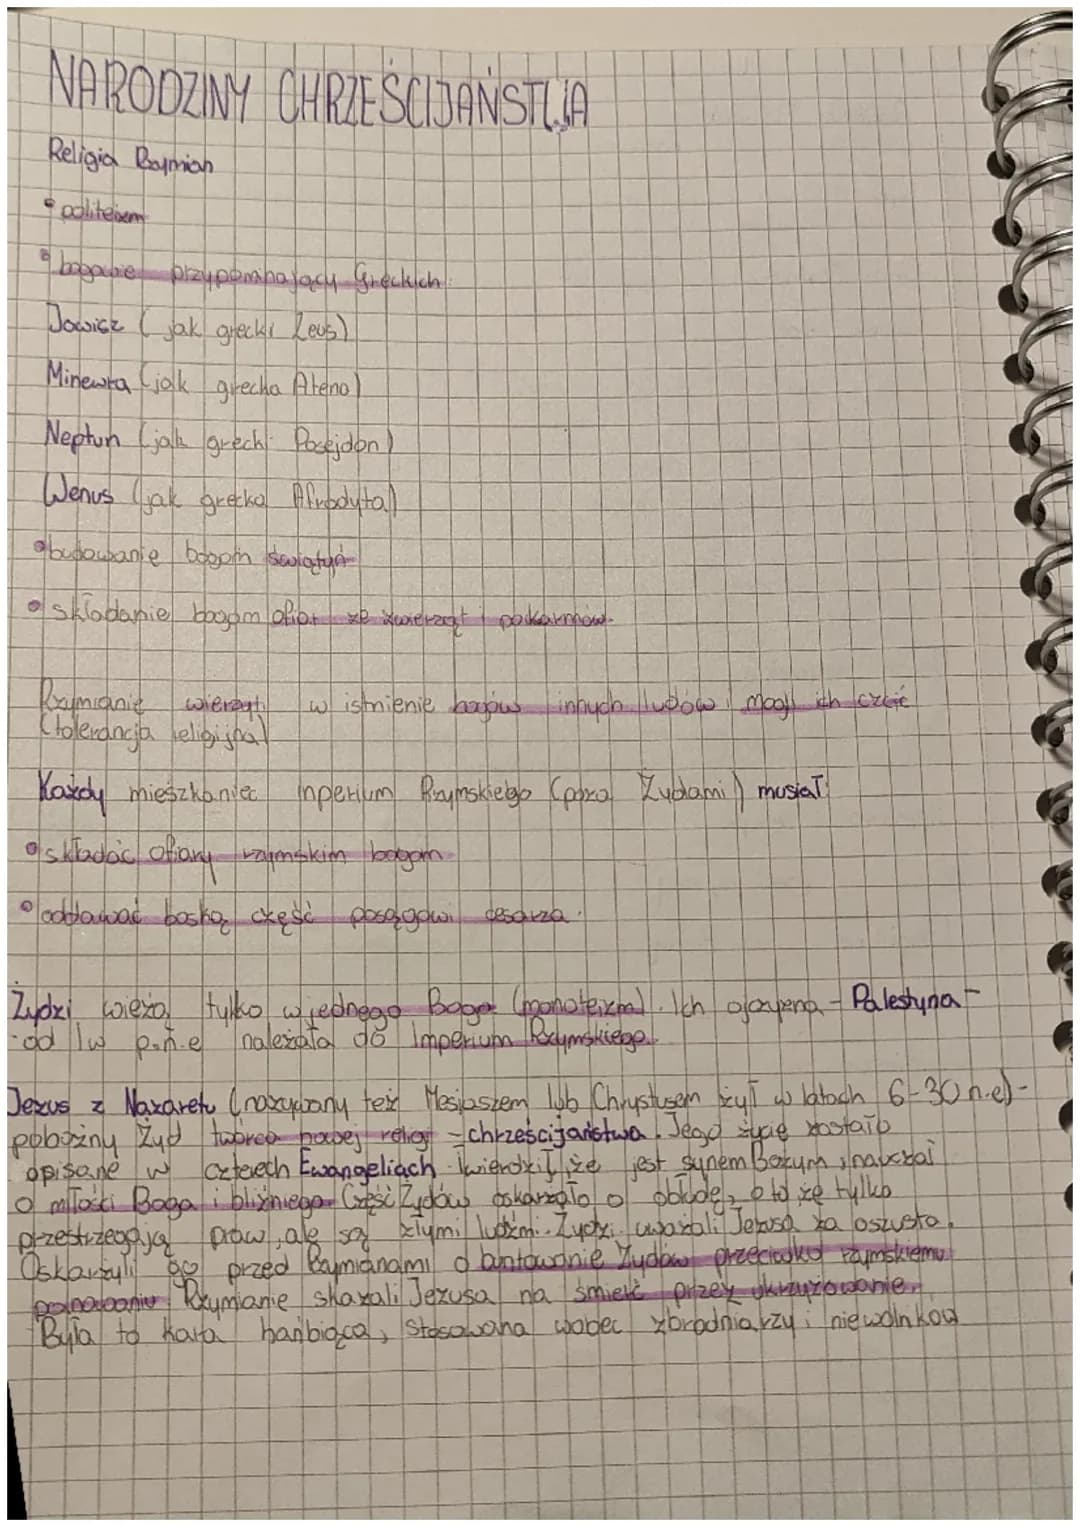 NARODZINY CHRZEŚCIJAŃSTWA
Religia Rzymian
• politeizm
• bogowie przypominający Greckich
Jowisz (jak grecki Zeus)
Minewra (jak grecka Atena)
Neptun (jak grecki Posejdon)
Wenus (jak grecka Afrodyta)
• budowanie bogom świątyń
• składanie bogom ofiar ze zwierząt i pokarmów.
Rzymianie wierzyli w istnienie bogów innych ludów i mogli ich czcić
(tolerancja religijna)
Każdy mieszkaniec inperium Rzymskiego (poza Żydami) musiał:
• składać ofiary rzymskim bogom
• oddawać boską część posągowi cesarza.
Żydzi wieżą tylko w jednego Boga (monoteizm). Ich ojczyzna - Palestyna -
od I w p.n.e należała do Imperium Rzymskiego.
Jezus z Nazaretu (nazywany też Mesjaszem lub Chrystusem żył w latach 6-30 n.e) -
pobożny Żyd twórca nowej religi - chrześcijaństwa. Jego życie zostało
opisane w czterech Ewangeliach twierdził, że jest synem Bożym, nauczał
o miłości Boga i bliźniego. Część Żydów oskarżało o obłudę, o to że tylko
przestrzegają praw, ale są złymi ludźmi. Żydzi uważali Jezusa za oszusta.
Oskarżyli go przed Rzymianami o buntowanie Żydów przeciwko rzymskiemu
panowaniu Rzymianie skazali Jezusa na śmierć przez ukrzyżowanie.
Była to kara hańbiąca, stosowana wobec zbrodniarzy i niewolników